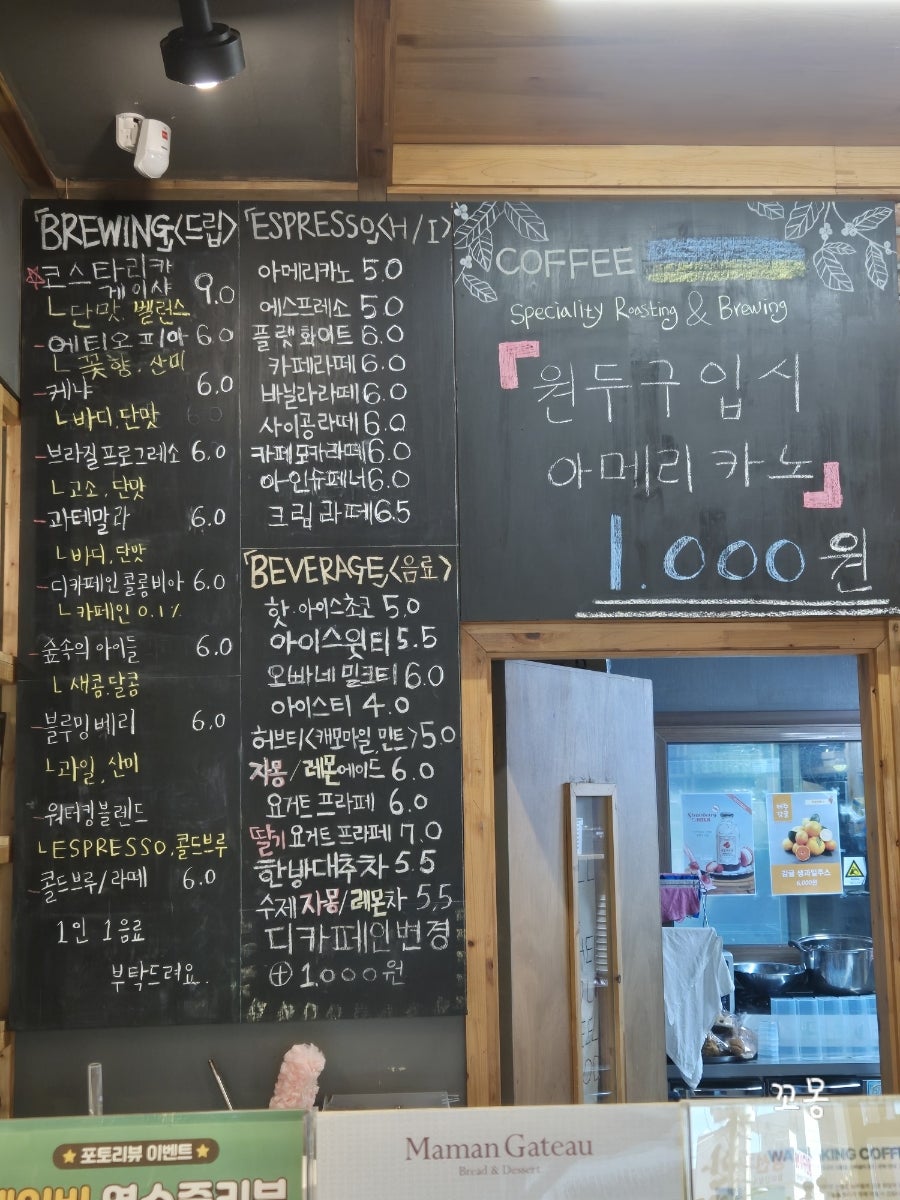 「BREWING」<드립>
☆코스타리카
게이샤 9.0
└단맛, 벨런스
-에티오피아 6.0
└ 꽃향, 산미
-케냐 6.0
└바디, 단맛
-브라질프로그레소 6.0
└고소, 단맛
-과테말라 6.0
└바디, 단맛
-디카페인콜롱비아 6.0
└카페인 0.1%
-숲속의 아이들 6.0
└ 새콤.달콤
-블루밍베리 6.0
└과일, 산미
-워터킹블렌드
└ESPRESSO, 콜드브루
콜드브루/라떼 6.0
1인 1음료
부탁드려요.
「ESPRESSO」<H/I>
아메리카노 5.0
에스프레소 5.0
플랫화이트 6.0
카페라떼 6.0
바닐라라떼 6.0
사이공라떼 6.0
카페모카라떼 6.0
아인슈페너 6.0
크림라떼 6.5
「BEVERAGE」<음료>
핫·아이스초코 5.0
아이스윗티 5.5
오빠네 밀크티 6.0
아이스티 4.0
허브티<캐모마일, 민트> 5.0
자몽/레몬에이드 6.0
요거트 프라페 6.0
딸기요거트프라페 7.0
한방대추차 5.5
수제자몽/레몬차 5.5
디카페인변경
⊕1.000원
COFFEE
Speciality Roasting & Brewing
「원두구입시
아메리카노」
1.000원
감귤 생과일주스
6,000원
꼬몽
★ 포토리뷰 이벤트 ★
영수증리뷰
Maman Gateau
Bread & Dessert